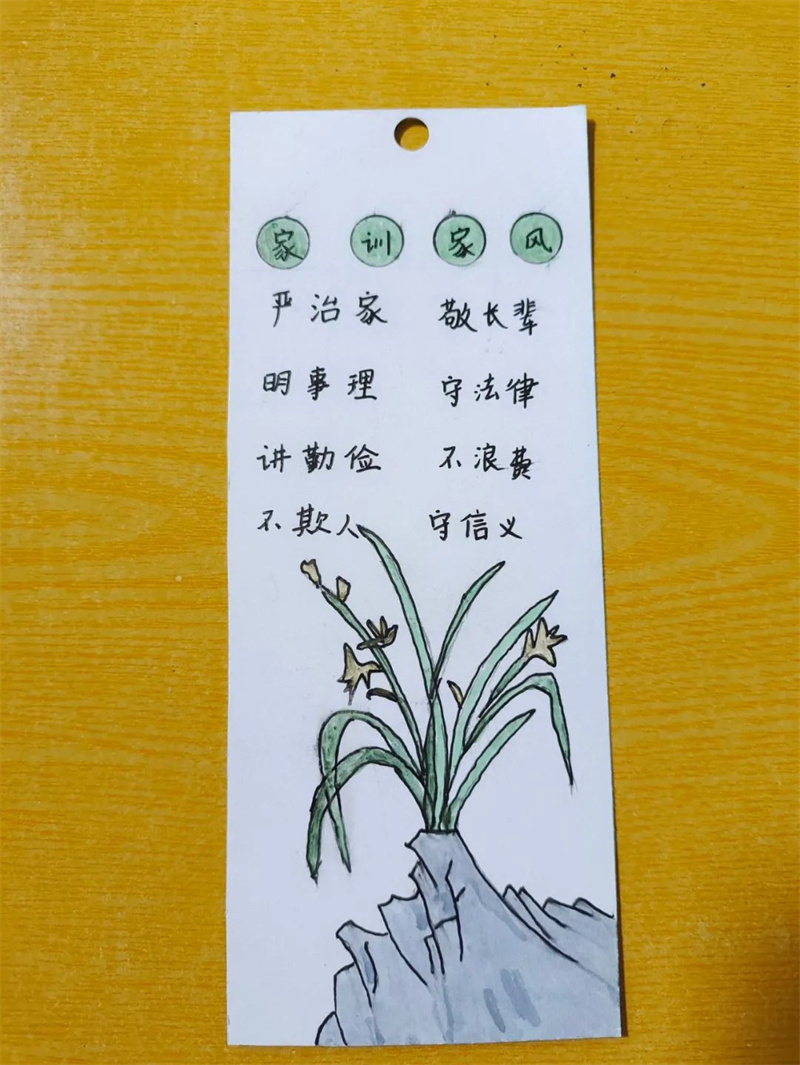 家训家风
严治家 敬长辈
明事理 守法律
讲勤俭 不浪费
不欺人 守信义